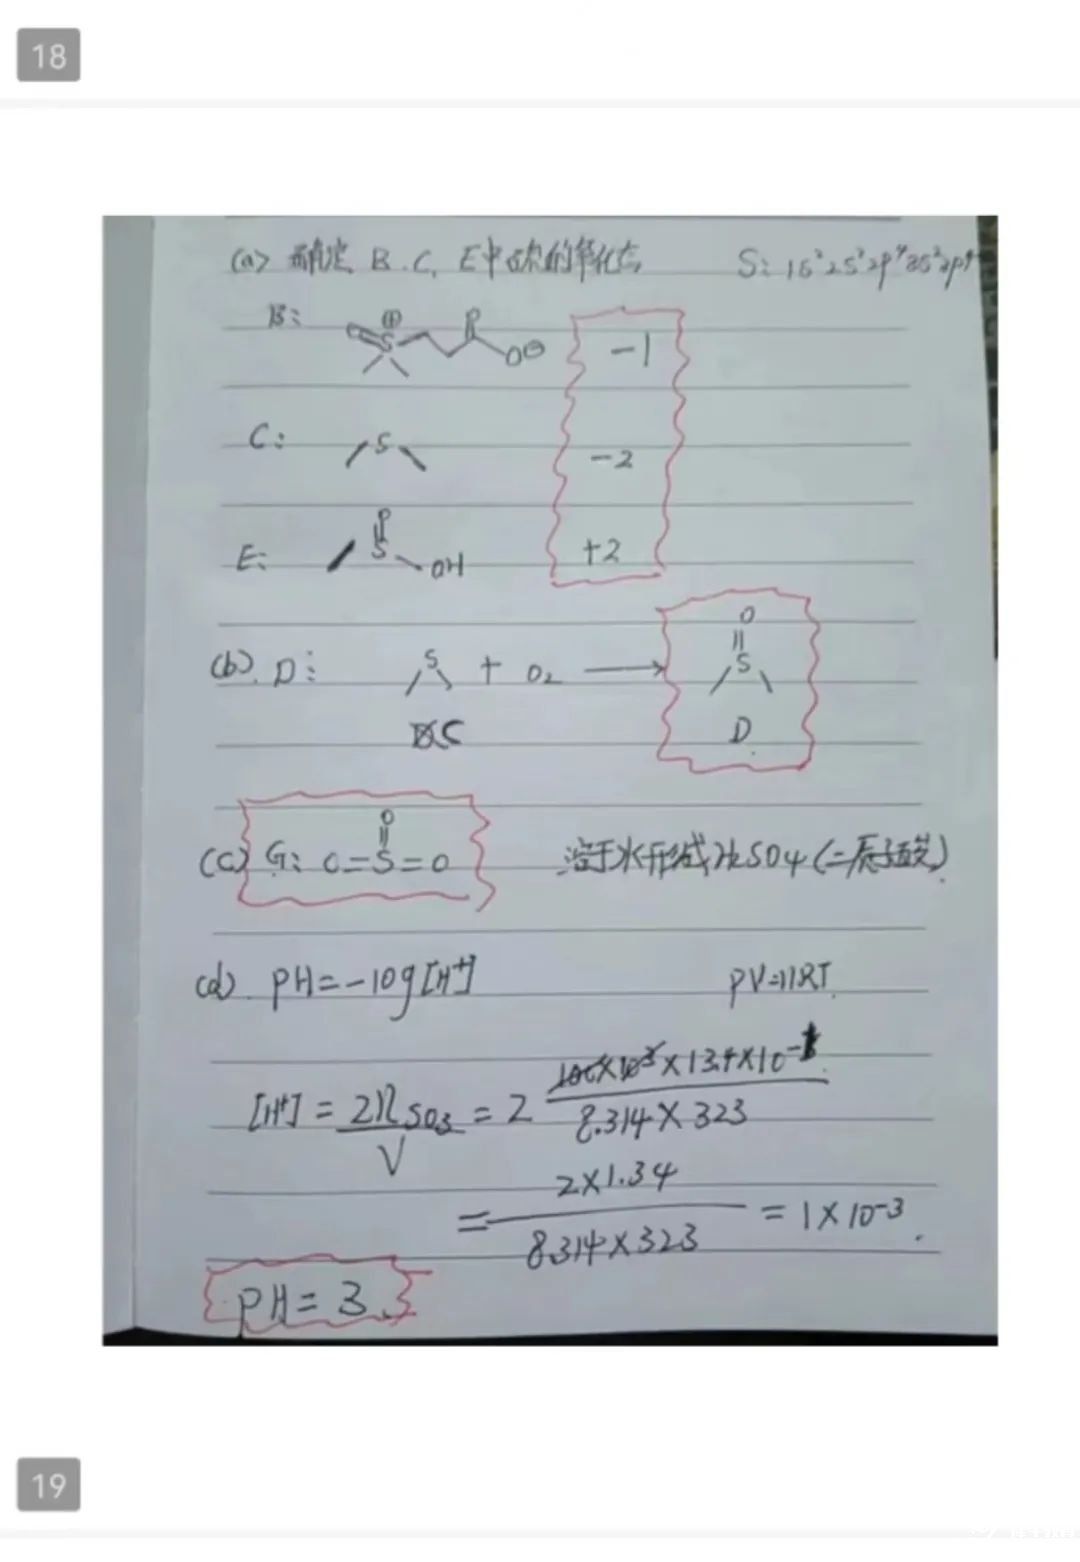 18
(a) 确定 B.C. E中硫的氧化态 S: 1s²2s²2p⁴3s²3p⁴
B: ⊕ S O O⊖ -1
C: S -2
E: O S OH +2
(b). D: S + O₂ → O S
C D
(c) G: O=S=O O 溶于水形成H₂SO₄(二质子酸)
(d). PH=-log[H⁺] PV=nRT
[H⁺] = 2n SO₃ / V = 2 100×10³×13.4×10 / 8.314×323
= 2×1.34 / 8.314×323 = 1×10⁻³.
PH= 3
19